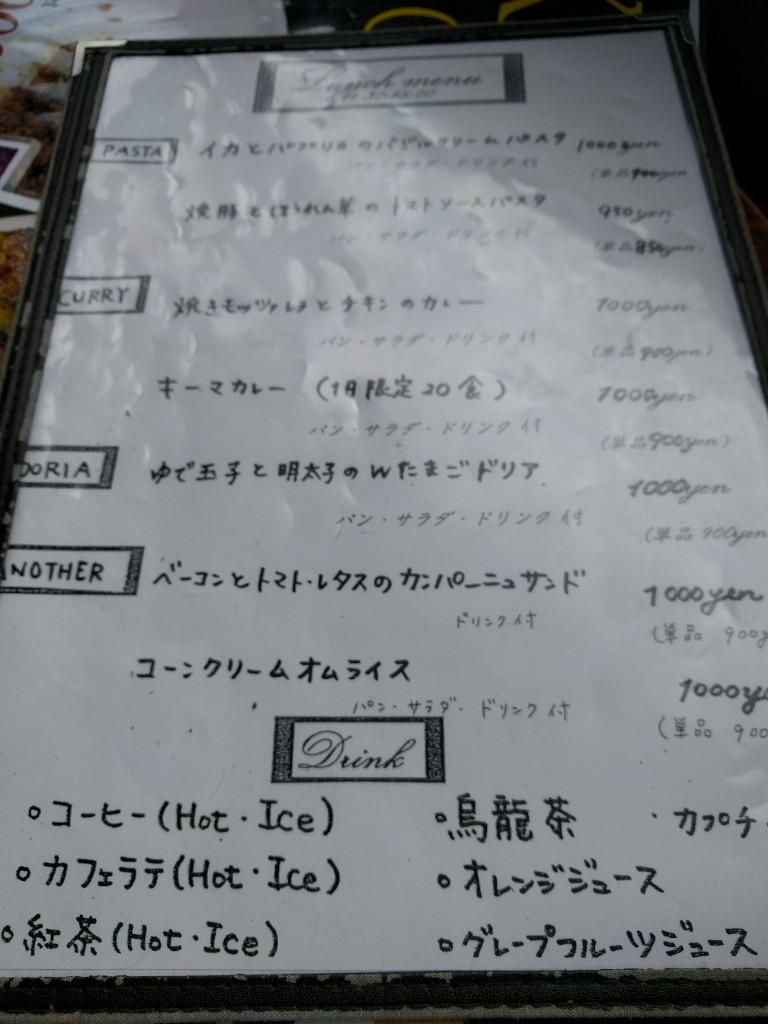 Lunch menu
PASTA イカとパプリカのバジルクリームパスタ 1000yen
パン・サラダ・ドリンク付 (単品900yen
焼豚とほうれん草のトマトソースパスタ 950yen
パン・サラダ・ドリンク付 (単品850yen.
CURRY 焼きモッツァレラとチキンのカレー 1000yen
パン・サラダ・ドリンク付 (単品900yen)
キーマカレー (1日限定20食) 1000yen
パン・サラダ・ドリンク付 (単品900yen)
DORIA ゆで玉子と明太子のWたまごドリア 1000yen
パン・サラダ・ドリンク付 (単品900yen
NOTHER ベーコンとトマト・レタスのカンパーニュサンド 1000yen
ドリンク付 (単品 900y
コーンクリームオムライス 1000y
パン・サラダ・ドリンク付 (単品 900
Drink
○コーヒー(Hot・Ice) ○烏龍茶 ・カプチ
○カフェラテ(Hot・Ice) ○オレンジジュース
○紅茶(Hot・Ice) ○グレープフルーツジュース